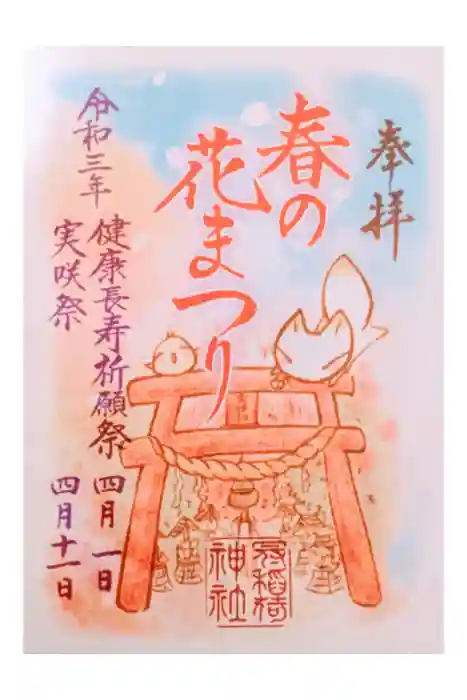 奉拝
春の
花まつり
令和三年
健康長寿祈願祭 四月一日
実咲祭 四月十一日
冠稲荷
神社